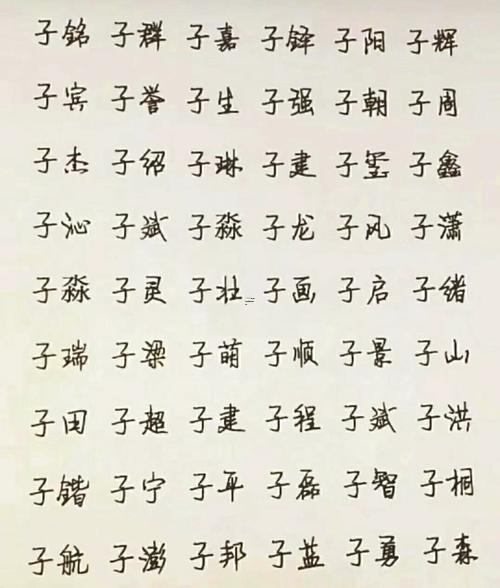 子铭 子群 子嘉 子铎 子阳 子辉
子宾 子誉 子生 子强 子朝 子周
子杰 子绍 子琳 子建 子玺 子鑫
子沁 子斌 子淼 子龙 子风 子潇
子淼 子灵 子壮 子画 子启 子绪
子瑞 子梁 子萌 子顺 子景 子山
子田 子超 子建 子程 子斌 子洪
子锴 子宁 子平 子磊 子智 子桐
子航 子澎 子邦 子蓝 子勇 子森